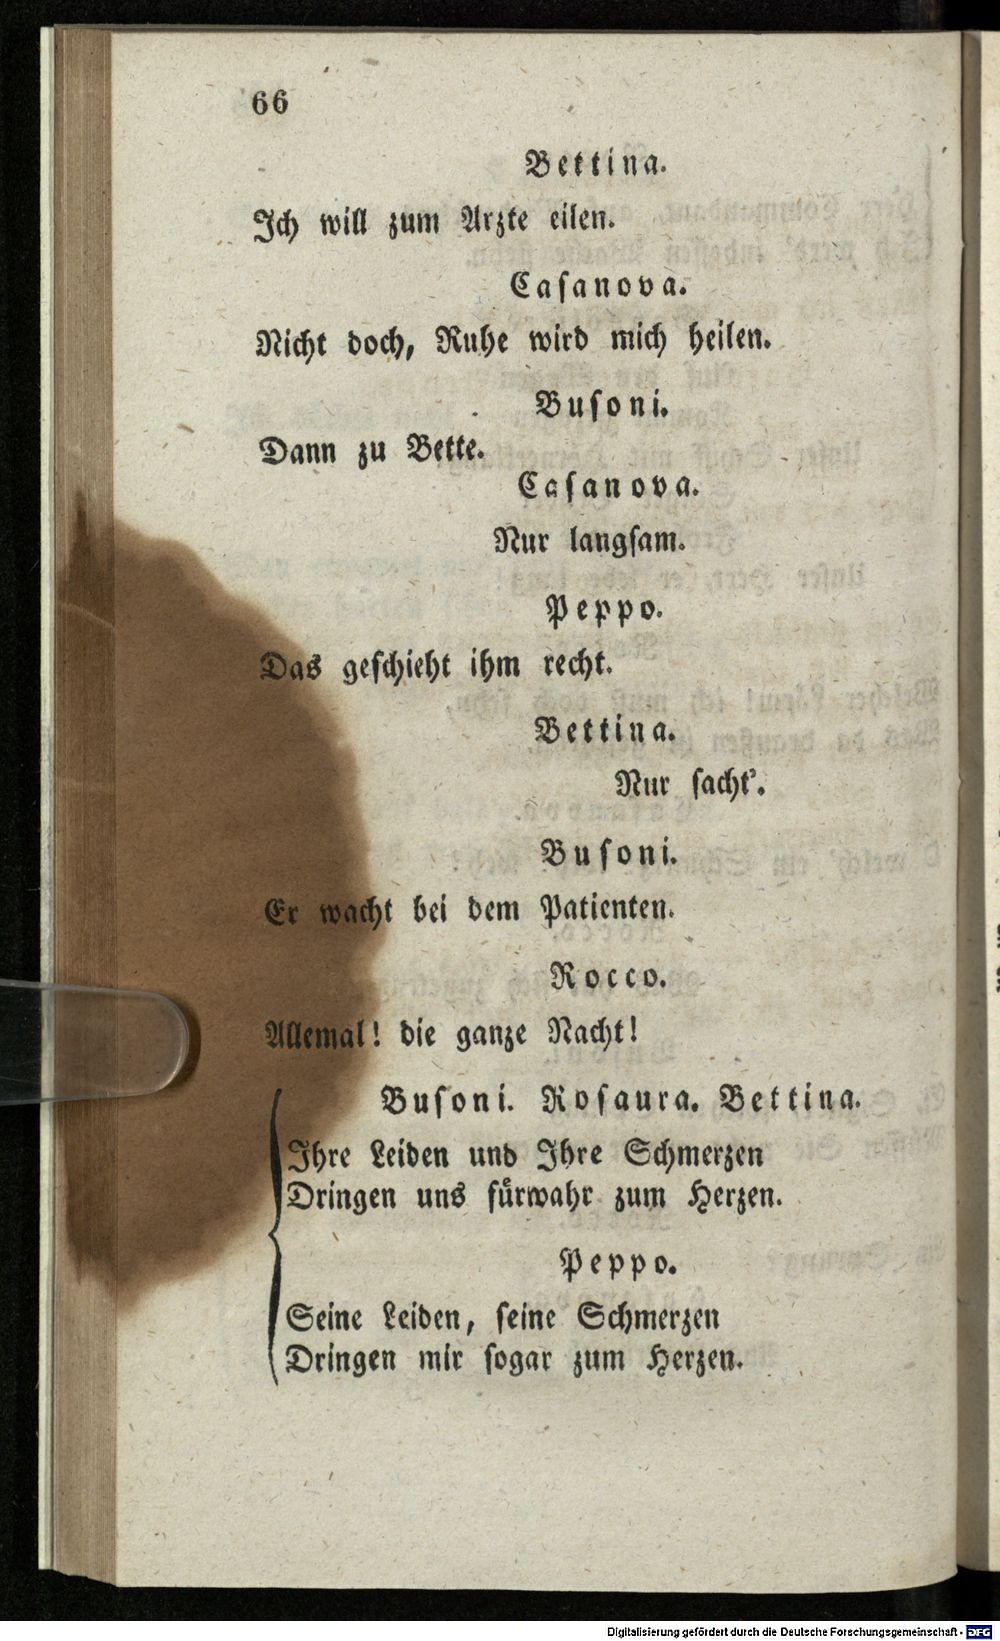 66
Bettina.
Ich will zum Arzte eilen.
Casanova.
Nicht doch, Ruhe wird mich heilen.
Busoni.
Dann zu Bette.
Casanova.
Nur langsam.
Peppo.
Das geschieht ihm recht.
Bettina.
Nur sacht'.
Busoni.
Er wacht bei dem Patienten.
Rocco.
Allemal! die ganze Nacht!
Busoni. Rosaura. Bettina.
Ihre Leiden und Ihre Schmerzen
Dringen uns fürwahr zum Herzen.
Peppo.
Seine Leiden, seine Schmerzen
Dringen mir sogar zum Herzen.
Digitalisierung gefördert durch die Deutsche Forschungsgemeinschaft - DFG